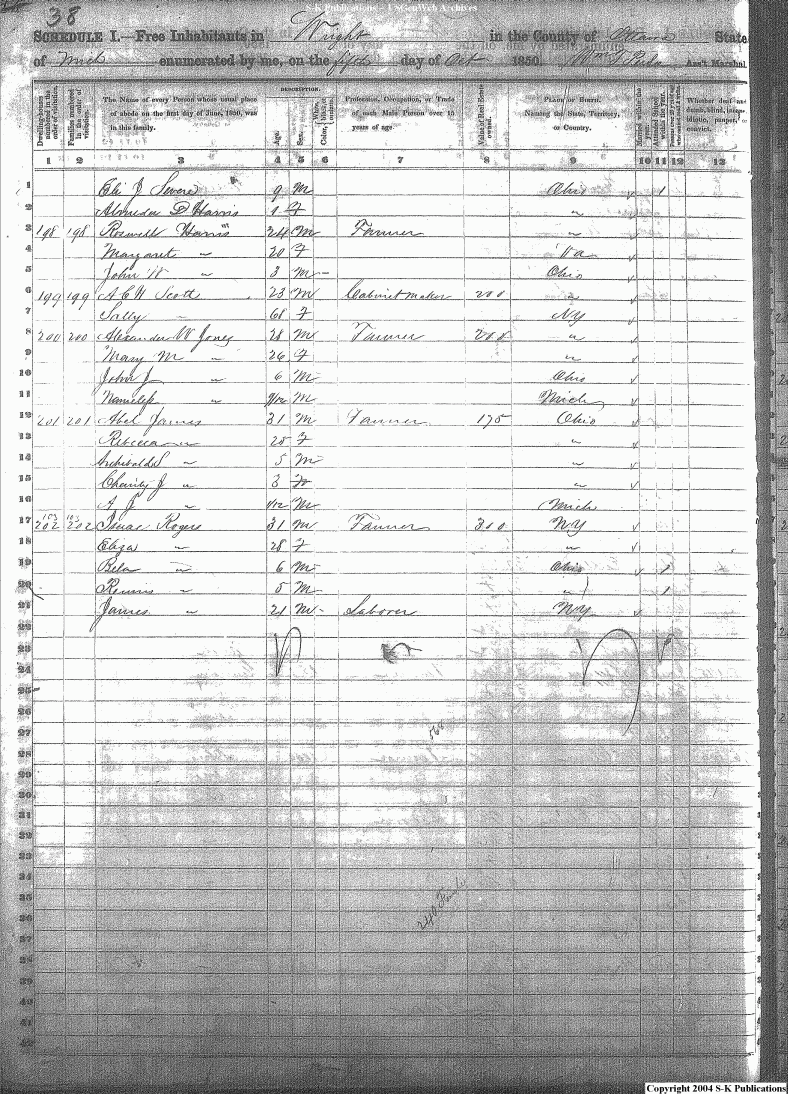 S-K Publications - USGenWeb Archives
38
SCHEDULE I.—Free Inhabitants in Wright in the County of Ottawa State
of Mich enumerated by me, on the fifth day of Oct 1850. Ass't Marshal
DESCRIPTION.
Dwelling-houses numbered in the order of visitation.
Families numbered in the order of visitation.
The Name of every Person whose usual place of abode on the first day of June, 1850, was in this family.
Age.
Sex.
Color, White, black, or mulatto.
Profession, Occupation, or Trade of each Male Person over 15 years of age.
Value of Real Estate owned.
PLACE OF BIRTH. Naming the State, Territory, or Country.
Married within the year.
Attended School within the year.
Whether deaf and dumb, blind, insane, idiotic, pauper, or convict.
1 2 3 4 5 6 7 8 9 10 11 12 13
1 Eli J Severe 9 M Ohio ✓ 1
2 Almeda D Harris 1 F "
3 198 198 Roswell Harris 24 M Farmer " ✓
4 Margaret " 20 F ✓
5 John W " 3 M Ohio ✓
6 199 199 A C H Scott 23 M Cabinet maker 200 " ✓
7 Sally " 68 F NY ✓
8 200 200 Alexander W Jones 28 M Farmer 200 " ✓
9 Mary M " 26 F " ✓
10 John J " 6 M Ohio ✓
11 Nameless " 9/12 M Mich ✓
12 201 201 Abel James 31 M Farmer 175 Ohio ✓
13 Rebecca " 28 F " ✓
14 Archibald S " 5 M " ✓
15 Charity J " 3 F " ✓
16 A J " 1/12 M Mich ✓
17 202 202 Isaac Rogers 31 M Farmer 300 NY ✓
18 Eliza " 28 F " ✓
19 Bela " 6 M Ohio ✓ 1
20 " 5 M " 1
21 James " 21 M Laborer NY ✓
22
23
24
25
26
27
28
29
30
31
32
33
34
35
36
37
38
39
40
41
42
Copyright 2004 S-K Publications